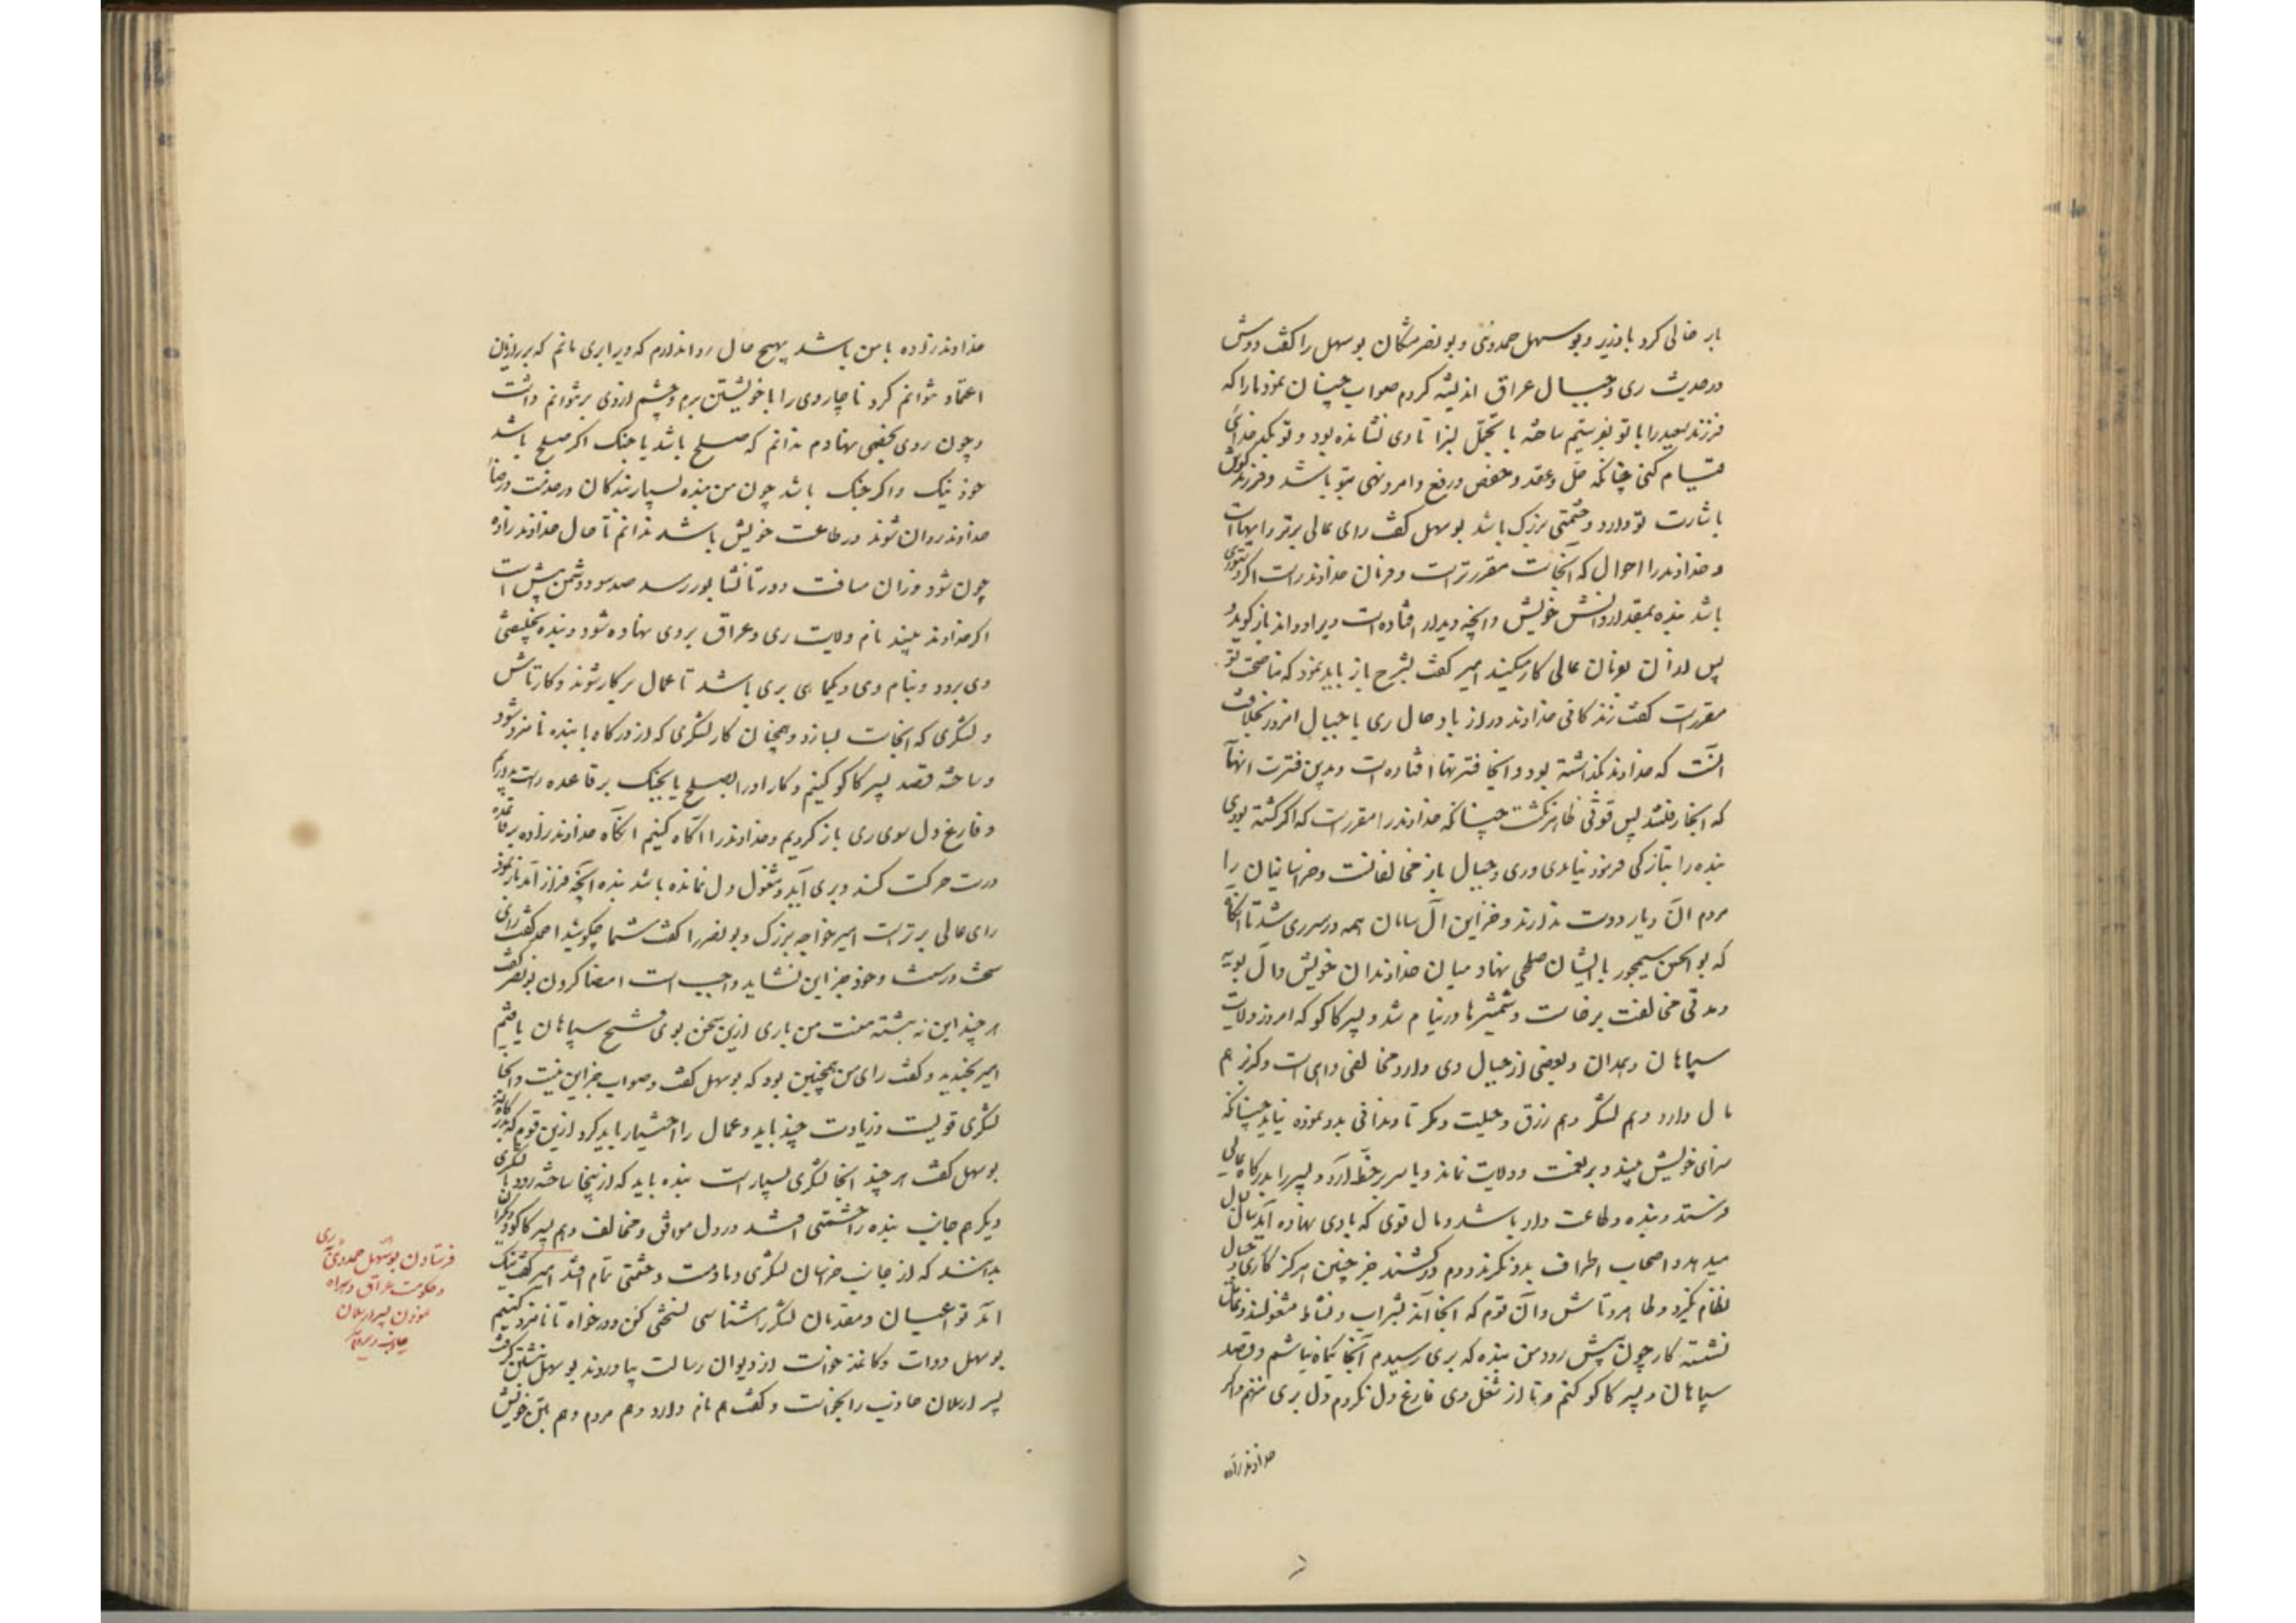 بار خالی کرد با وزیر و بوسهل حمدونی و بونصر مشکان بوسهل را گفت دوش
در حدیث ری و جبال عراق اندیشه کردم صواب چنان نمود ما را که
فرزند سعید را با تو بفرستیم ساخته با تجملی بسزا تا وی نشانده بود و تو بکدخدائی
قیام کنی چنانکه حل و عقد و خفض و رفع و امر و نهی بتو باشد و فرزند گوش
باشارت تو دارد و حشمتی بزرگ باشد بوسهل گفت رای عالی برتر رایهاست
و خداوند را احوال که آنجاست مقررتر است و فرمان خداوند راست اگر دستوری
باشد بنده بمقدار دانش خویش و آنچه دیدار افتاده است ویرا دو اند باز گوید و
پس از آن بفرمان عالی کار میکند امیر گفت بشرح باز باید نمود که مناصحت تو
مقررست گفت زندگانی خداوند دراز باد حال ری با جبال امروز بخلاف
آنست که خداوند بگذاشته بود و آنجا فترتها افتاده است و بدین فترت آنها
که آنجا رفتند پس قوتی ظاهر نگشت چنانکه خداوند را مقررست که اگر گشته بودی
بنده را بتازگی فرمود نیامدی و ری و جبال باز مخالفانست و خراسانیان را
مردم آن دیار دوست ندارند و خزاین آل سامان همه در سر ری شد تا آنگاه
که بوالحسن سیمجور با ایشان صلحی نهاد میان خداوندان خویش و آل بویه
و مدتی مخالفت برخاست و شمشیرها در نیام شد و پسر کاکو که امروز ولایت
سپاهان و همدان و بعضی از جبال وی دارد مخالفی داهی است و گربز هم
مال دارد و هم لشکر و هم زرق و حیلت و مکر تا دندانی بدو نموده نیاید چنانکه
سزای خویش بیند و برنعمت و ولایت نماند و یا سر برخط آرد و پسر را بدرگاه عالی
فرستد و بنده و طاعت دار باشد و مال قوی که با وی نهاده آید سال بسال
میدهد و اصحاب اطراف بدو نگرند و دم درکشند جز چنین هرگز کار ری و جبال
نظام نگیرد و طاهر و تاش و آن قوم که آنجااند بشراب و نشاط مشغولند و غافل
نشسته کار چون پیش رود من بنده که بری رسیدم آنجا یکماه نباشم و قصد
سپاهان و پسر کاکو کنم و تا از شغل وی فارغ دل نگردم دل بری ننهم و اگر
خداوندزاده
خداوندزاده با من باشد بهیچ حال روا ندارم که ویرا بری مانم که بر رازیان
اعتماد نتوانم کرد ناچار وی را با خویشتن برم و چشم از وی برنتوانم داشت
و چون روی بخصمی نهادم ندانم که صلح باشد یا جنگ اگر صلح باشد
خود نیک و اگر جنگ باشد چون من بنده بسیار بندگان در خدمت و رضا
خداوند روان شوند در طاعت خویش باشد ندانم تا حال خداوندزاده
چون شود و زان مسافت دور تا نشابور رسد صد سو و دشمن پیش است
اگر خداوند بیند نام ولایت ری و عراق بر وی نهاده شود و بنده بخلیفتی
وی برود و بنام وی دیگماهی بری باشد تا عمال بر کار شوند و کار تاش
و لشکری که آنجاست بسازد و همچنان کار لشکری که از درگاه با بنده نامزد شود
و ساخته قصد پسر کاکو کنیم و کار او را بصلح یا بجنگ بر قاعده راست بداریم
و فارغ دل سوی ری باز گردیم و خداوند را آگاه کنیم آنگاه خداوندزاده بر قاعده
درست حرکت کند و بری آید و مشغول دل نمانده باشد بنده آنچه فراز آمد باز نمود
رای عالی برتر است امیر خواجه بزرگ و بونصر را گفت شما چگوئید احمد گفت رائی
سخت درست و خود جز این نشاید و واجب است امضا کردن بونصر گفت
هر چند این نه پیشه منست من باری ازین سخن بوی فتح سپاهان یافتم
امیر بخندید و گفت رای من همچنین بود که بوسهل گفت و صواب جز این نیست و آنجا
لشکری قویست و زیادت چند باید و عمال را اختیار باید کرد ازین قوم که بدرگاه‌اند
بوسهل گفت هر چند آنجا لشکری بسیار است بنده باید که از اینجا ساخته رود با لشکری
دیگر هم جانب بنده را حشمتی افتد در دل موافق و مخالف و هم پسر کاکو و دیگران
بدانند که از جانب خراسان لشکری دمادمست و حشمتی تمام افتد امیر گفت نیک
آمد تو اعیان و مقدمان لشکر را شناسی نسختی کن و درخواه تا نامزد کنیم
بوسهل دوات و کاغذ خواست از دیوان رسالت بیاوردند بوسهل نبشتن گرفت
پسر ارسلان جاذب را بخواست و گفت هم نام دارد و هم مردم و هم بتن خویش
فرستادن بوسهل حمدوئی بری
و حکومت عراق و همراه
نمودن پسر ارسلان
جاذب و دیگران